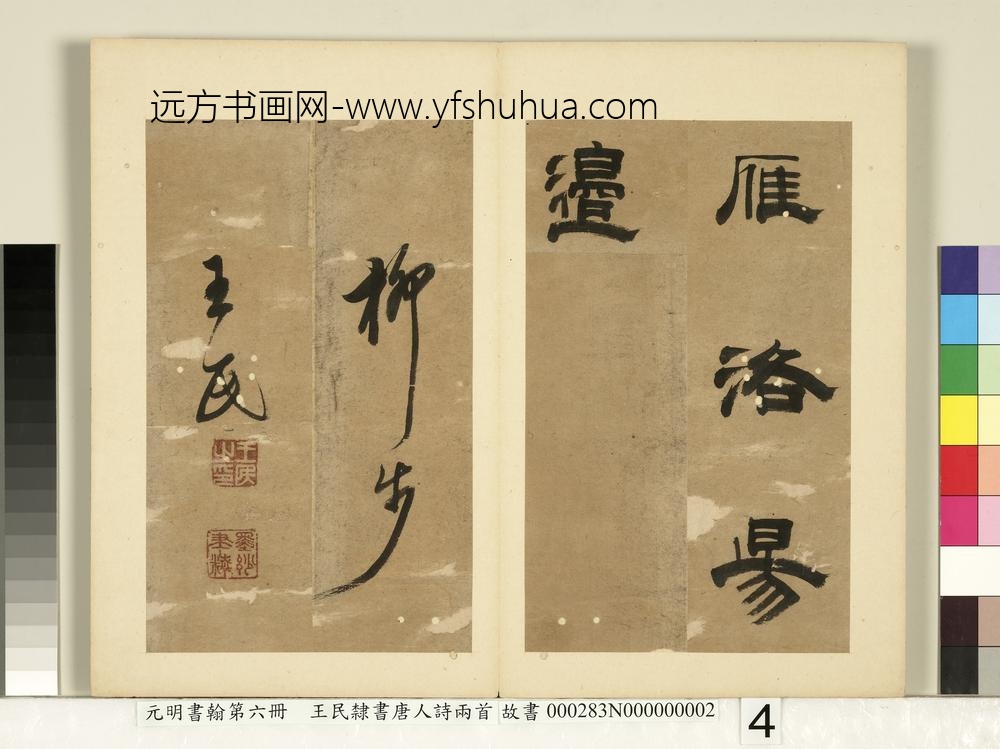 远方书画网-www.yfshuhua.com
雁洛昜
邉
柳步
王民
元明書翰第六冊 王民隸書唐人詩兩首 故書 000283N000000002
4